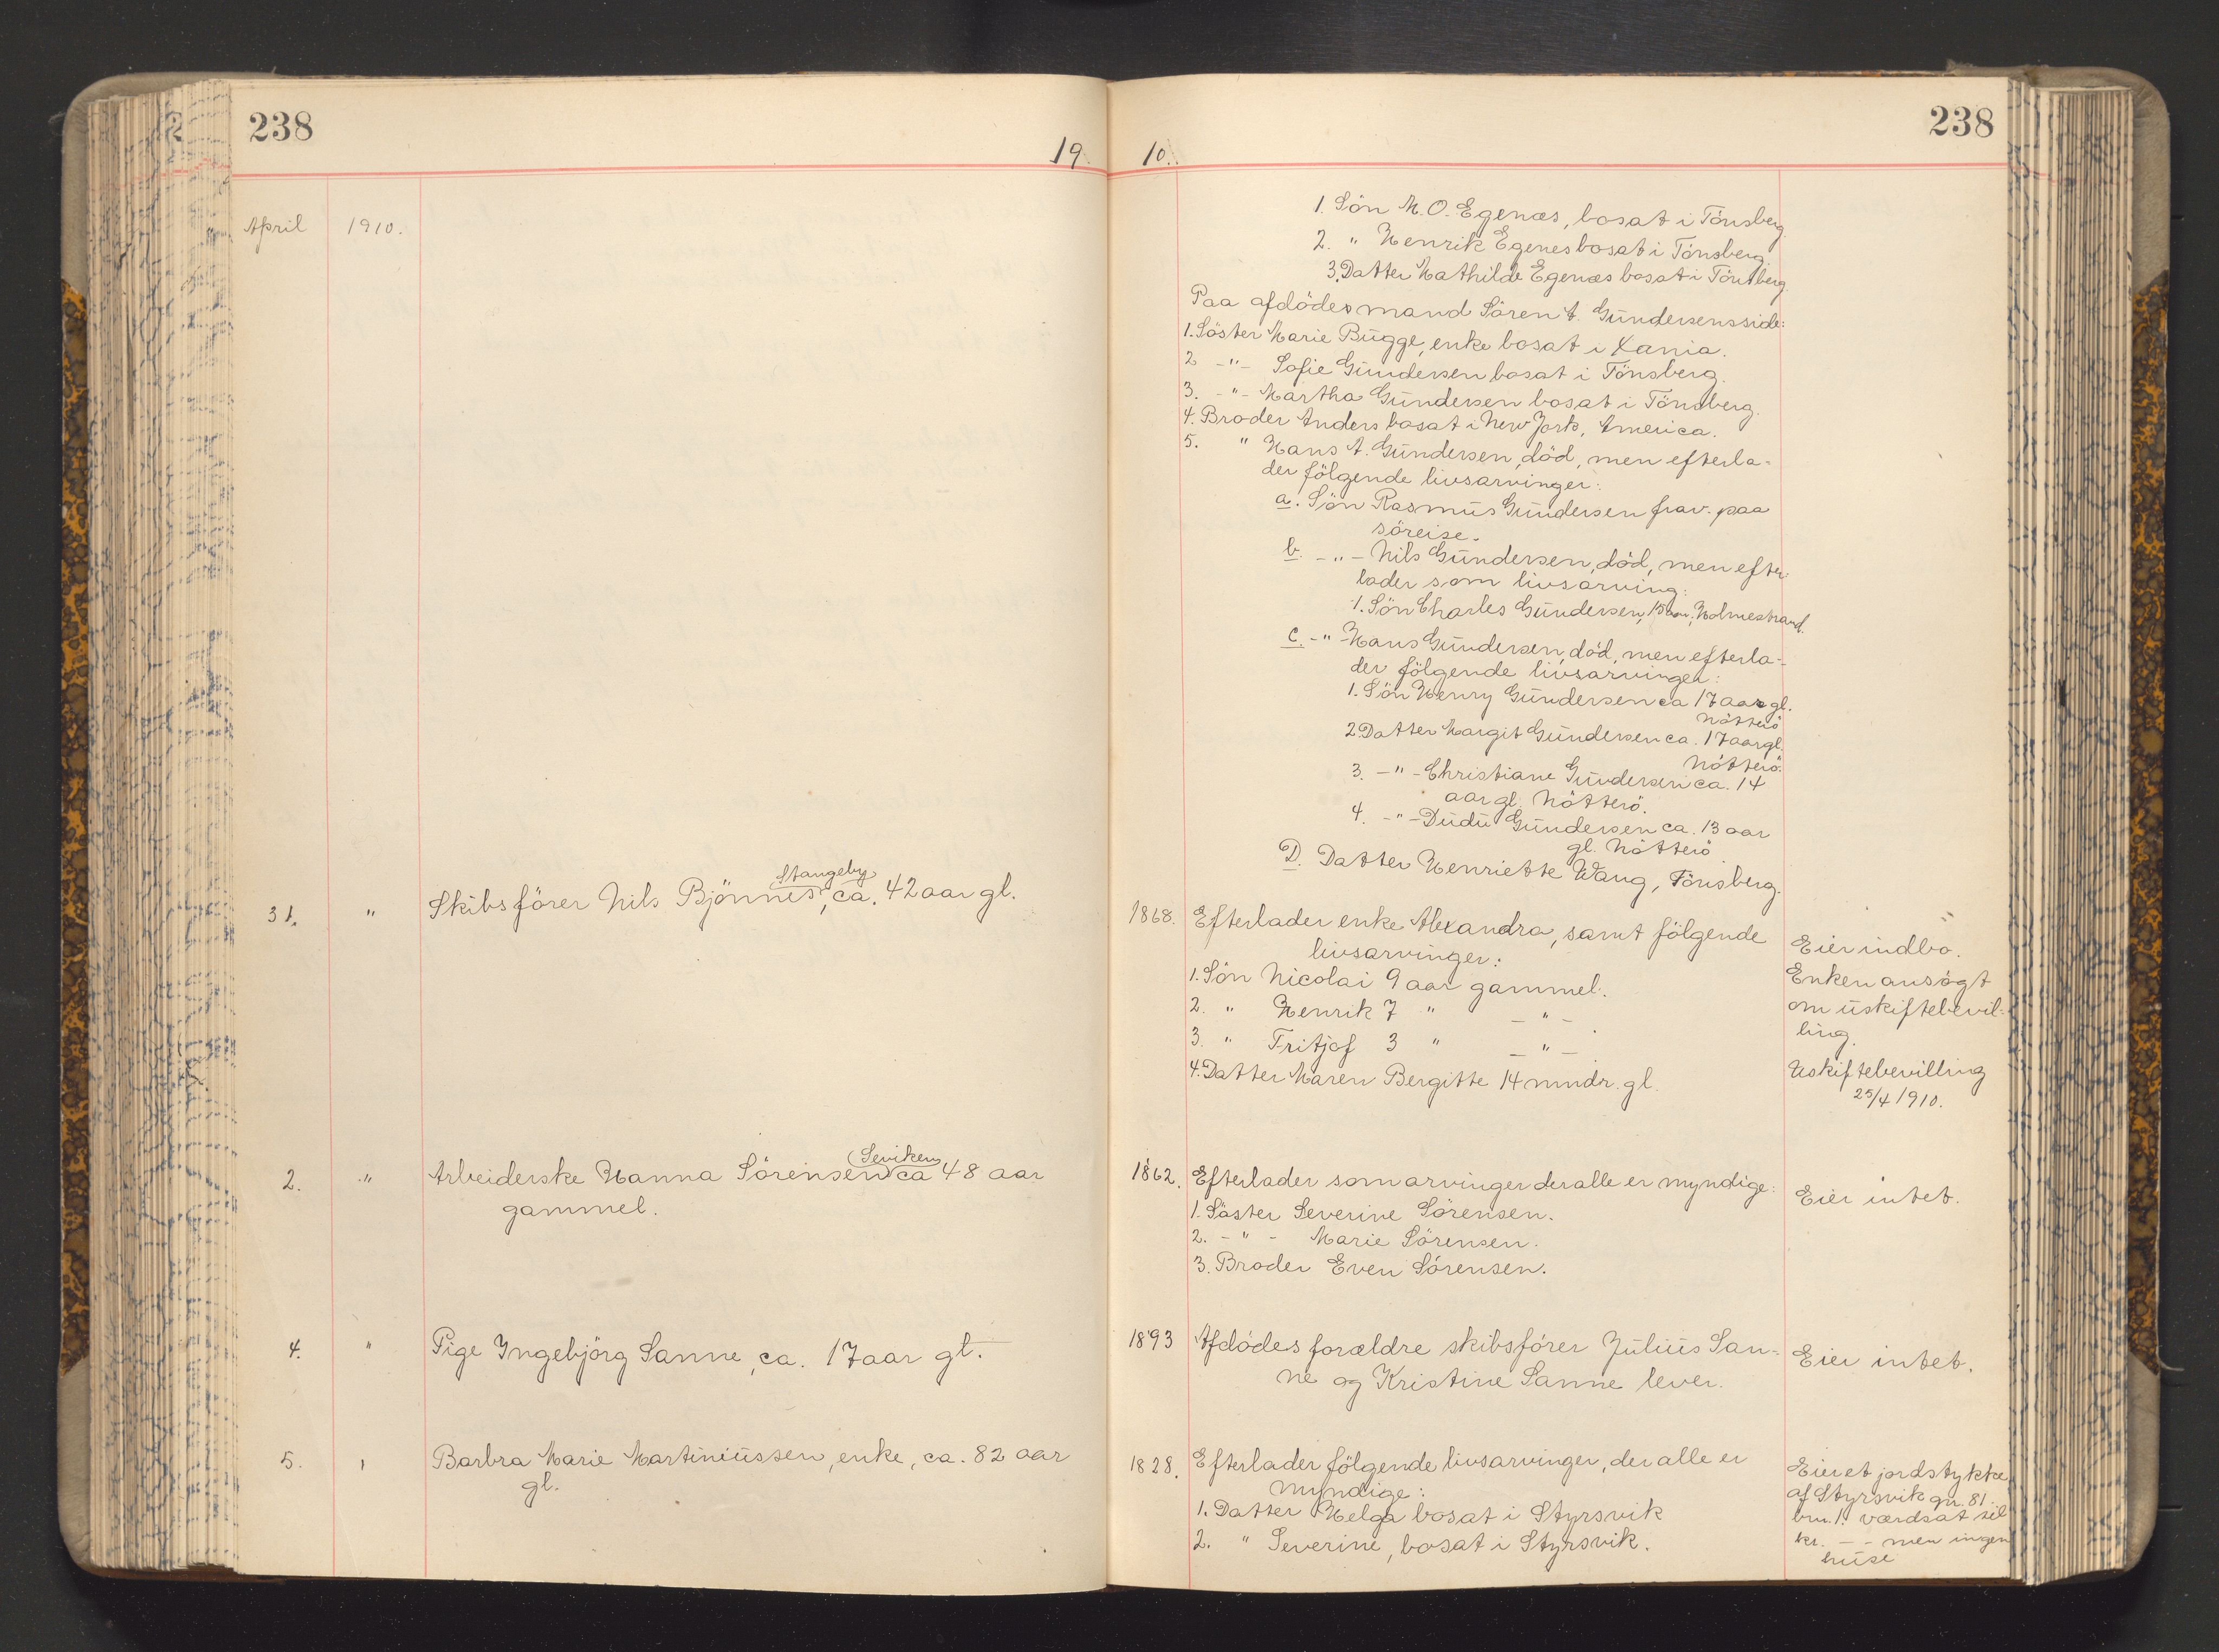 238
19
April 1910.
31. " Skibsförer Nils Bjönnes, Stangeby ca. 42 aar gl.
2. " Arbeiderske Hanna Sörensen Leviken ca 48 aar
gammel.
4. " Pige Ingebjörg Sanne, ca. 17 aar gl.
5. " Barbra Marie Martiniussen, enke, ca. 82 aar
gl.
238
10.
1. Sön M. O. Egenæs, bosat i Tönsberg.
2. " Henrik Egenes bosat i Tönsberg.
3. Datter Mathilde Egenæs bosat i Tönsberg.
Paa afdödes mand Sören A. Gundersens side:
1. Söster Marie Bugge, enke bosat i Xania.
2 -"- Sofie Gundersen bosat i Tönsberg.
3. -"- Martha Gundersen bosat i Tönsberg.
4. Broder Anders bosat i New York, America.
5. " Hans A. Gundersen, död, men efterla-
der fölgende livsarvinger:
a. Sön Rasmus Gundersen frav. paa
söreise.
b. -"- Nils Gundersen, död, men efter-
lader som livsarving:
1. Sön Charles Gundersen, 15 aar, Holmestrand.
c. -"- Hans Gundersen, död, men efterla-
der fölgende livsarvinger:
1. Sön Henry Gundersen ca 17 aar gl.
Nötterö
2 Datter Margit Gundersen ca. 17 aar gl.
Nötterö.
3. -"- Christiane Gundersen ca. 14
aar gl. Nötterö.
4. -"- Dudu Gundersen ca. 13 aar
gl. Nötterö.
D. Datter Henriette Wang, Tönsberg.
1868. Efterlader enke Alexandra, samt fölgende
livsarvinger:
1. Sön Nicolai 9 aar gammel.
2. " Henrik 7 " -"-
3. " Fritjof 3 " -"-
4. Datter Maren Bergitte 14 mndr. gl.
Eier indbo.
Enken ansögt
om uskiftebevil-
ling.
Uskiftebevilling
25/4 1910.
1862. Efterlader som arvinger der alle er myndige:
1. Söster Severine Sörensen.
2. -"- Marie Sörensen.
3. Broder Even Sörensen.
Eier intet.
1893 Afdödes forældre skibsförer Julius San-
ne og Kristine Sanne lever.
Eier intet.
1828. Efterlader fölgende livsarvinger, der alle er
myndige:
1. Datter Helga bosat i Styrsvik
2. " Severine, bosat i Styrsvik.
Eier et jordstykke
af Styrsvik gn. 81
brn. 1. værdsat til
kr. - - men ingen
huse